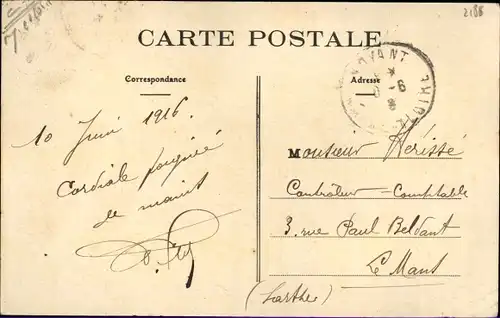 2186
CARTE POSTALE
Correspondance
Adresse
NOYANT
10 Juin 1916
Cordiale poignée
de main
Monsieur Hérissé
Contrôleur-Comptable
3, rue Paul Beldant
Le Mans
(Sarthe)